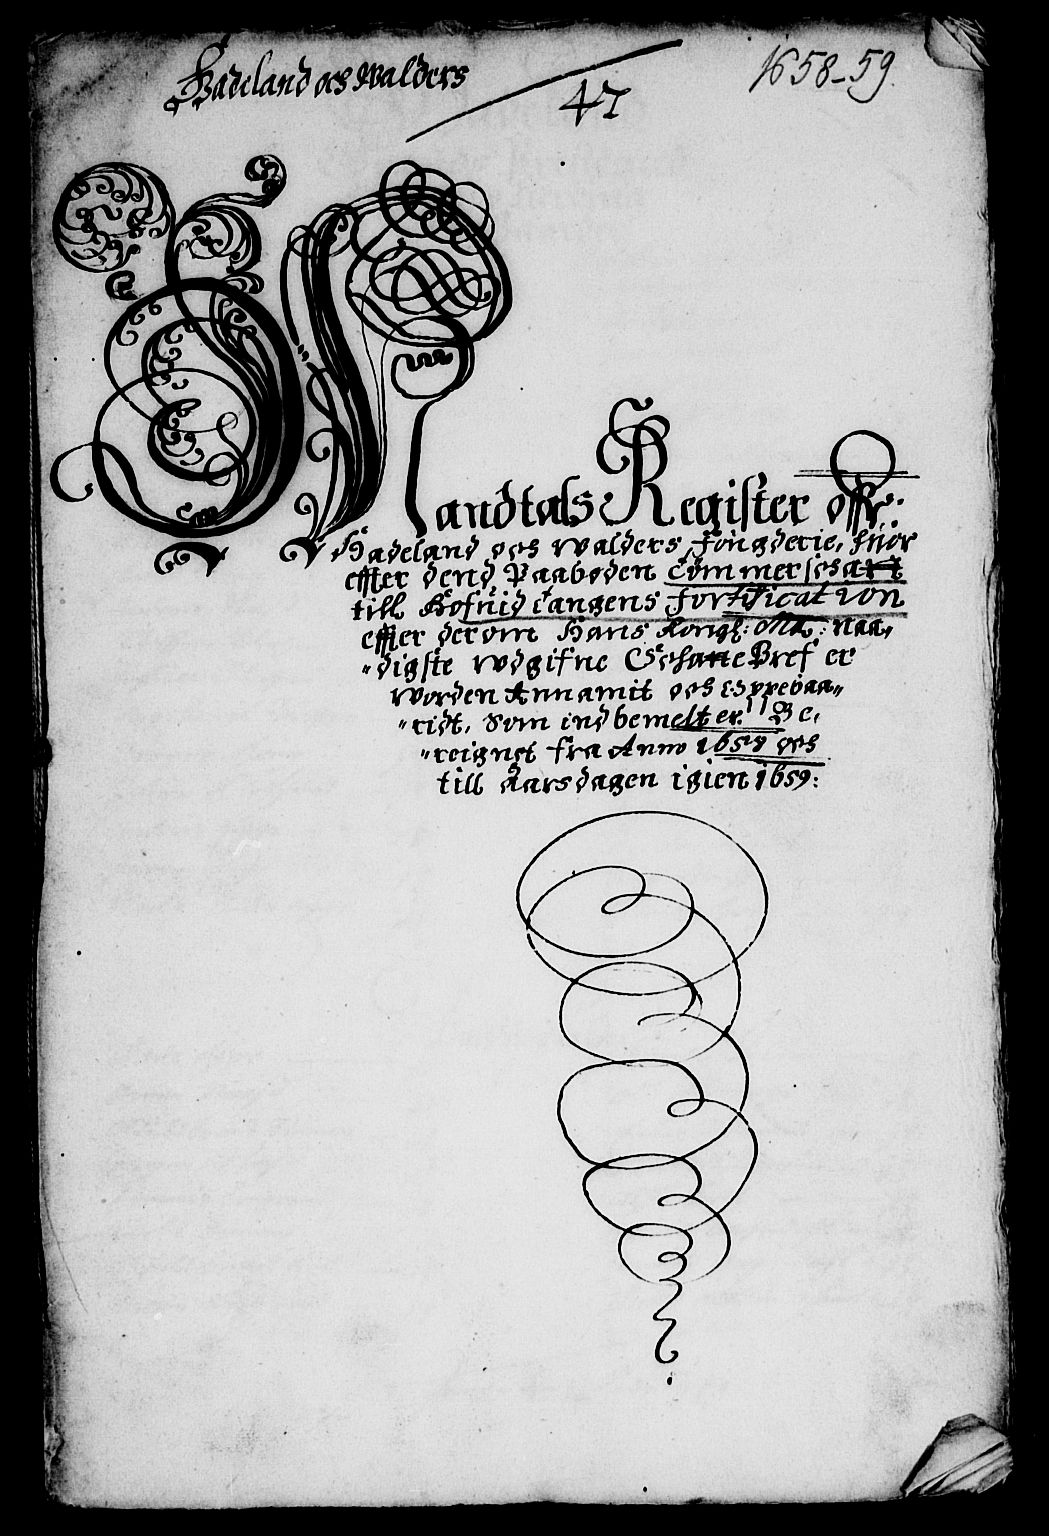 Hadeland och walders
47
1658-59.
Mandtals Register offr.
Hadeland och walders Fougderie, huor
effter dend Paabøden
till Hofuid tangens fortification
effter der om Hans Kongl: Mtz: naa,
digste wdgifne Bref er
worden Annamit och oppebaa
ridt, Som indbemelt er. Be,
reignet fra Anno 1658 och
till Aarsdagen igien 1659: